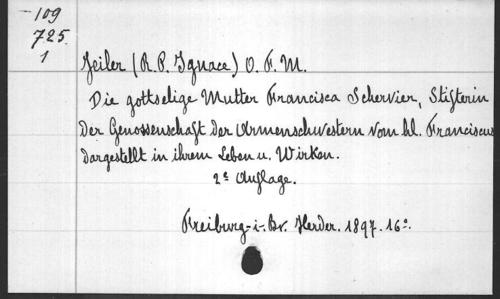 109
725
1
Jeiler (R. P. Ignace) O. F. M.
Die gottselige Mutter Francisca Schervier, Stifterin
der Genossenschaft der Armenschwestern vom hl. Franciscus
dargestellt in ihrem Leben u. Wirken.
2e Auflage.
Freiburg-i-Br. Herder. 1897. 16o.